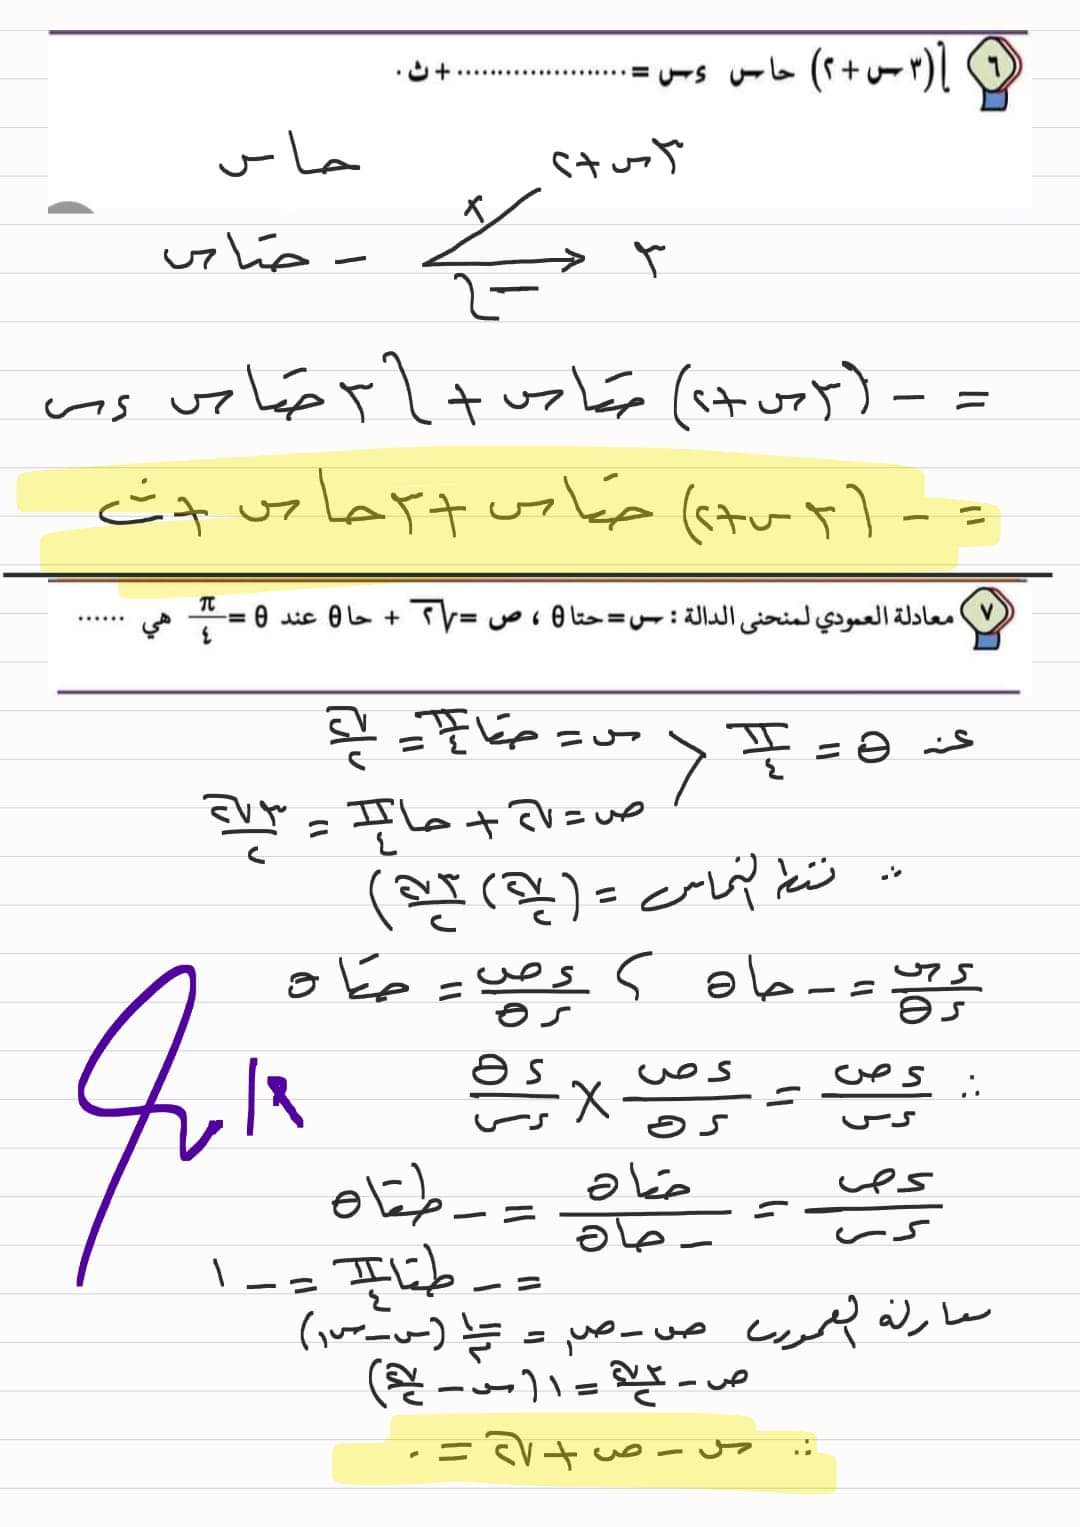 ٦ ∫(٣ س + ٢) حا س ءس = ..................... + ث .
٣س+٢ حا س
+
٣ - حتا س
-∫
= - (٣س+٢) حتا س + ∫٣ حتا س ءس
= - (٣س+٢) حتا س + ٣ حا س + ث
٧ معادلة العمودي لمنحنى الدالة : س = حتا θ ، ص = √٢ + حا θ عند θ = π/٤ هي ......
عند θ = π/٤ س = حتا π/٤ = √٢/٢
ص = √٢ + حا π/٤ = ٣√٢/٢
∴ نقطة التماس = (√٢/٢ ، ٣√٢/٢)
ءس/ءθ = - حا θ ؟ ءص/ءθ = حتا θ
∴ ءص/ءس = ءص/ءθ × ءθ/ءس
ءص/ءس = حتا θ/- حا θ = - طتا θ
= - طتا π/٤ = - ١
معادلة العمودي ص - ص١ = -١/م (س - س١)
ص - ٣√٢/٢ = ١ (س - √٢/٢)
∴ س - ص + √٢ = ٠